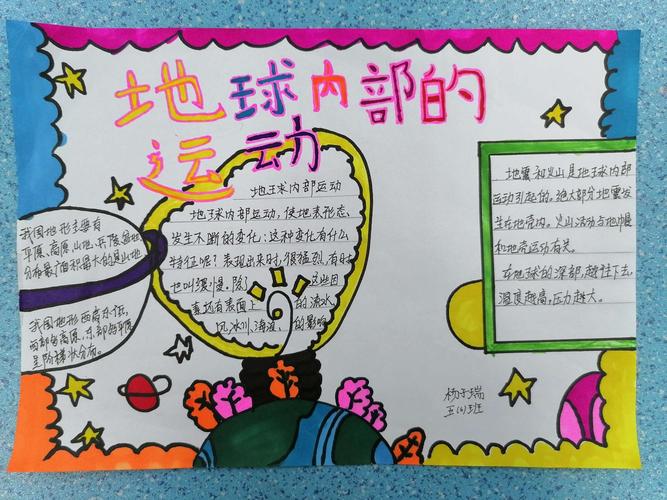 地球内部的
运动
我国地形主要有
平原、高原、山地、丘陵、盆地
分布最广面积最大的是山地
我国地形西高东低，
西部多高原，东部多平原
呈阶梯状分布。
地球内部运动
地球内部运动，使地表形态，
发生不断的变化：这种变化有什么
特征呢？表现出来时，很猛烈，有时
也叫缓慢。除了 这些因
素还有表面上 的流水
风、冰川、海浪、 的影响
地震和火山是地球内部
运动引起的，绝大部分地震发
生在地壳内，火山活动与地幔
和地壳运动有关。
在地球的深部，越往下去，
温度越高，压力越大。
杨于瑞
五(6)班